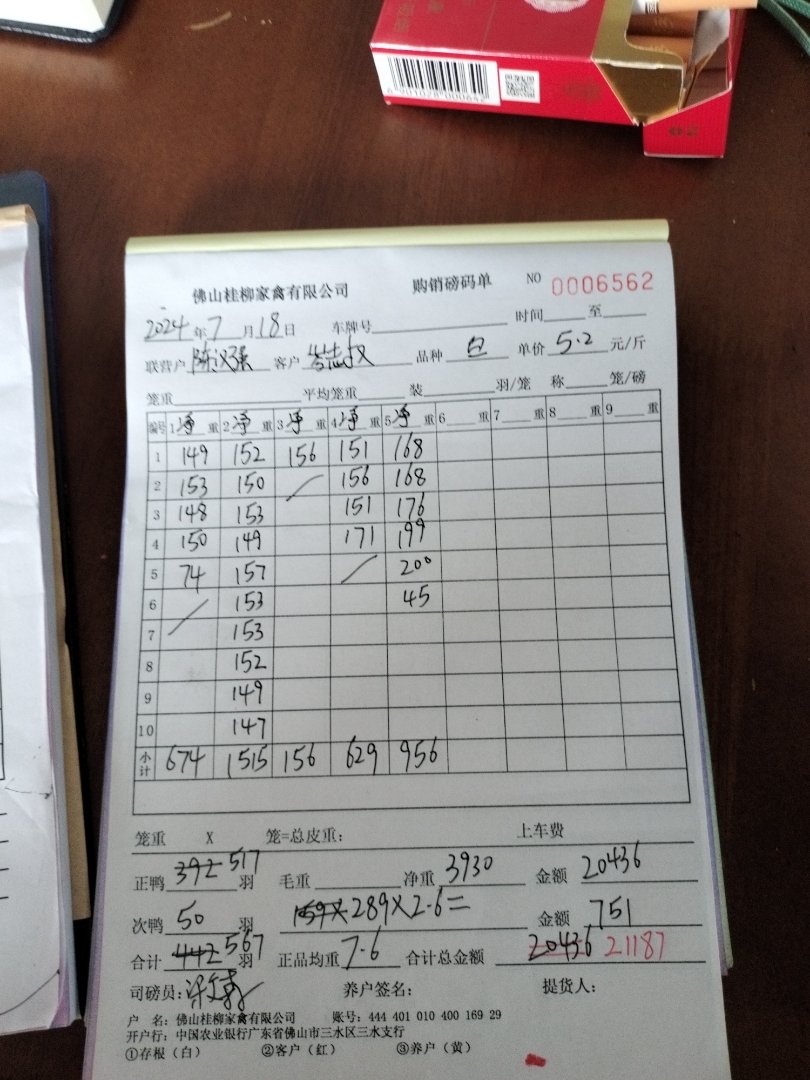 佛山桂柳家禽有限公司 购销磅码单 NO 0006562
2024年7月18日 车牌号 时间 至
联营户 陈汉强 客户 品种 白 单价 5.2 元/斤
笼重 平均笼重 装 羽/笼 称 笼/磅
编号 1净重 2净重 3净重 4净重 5净重 6 重 7 重 8 重 9 重
1 149 152 156 151 168
2 153 150 156 168
3 148 153 151 176
4 150 149 171 199
5 74 157 200
6 153 45
7 153
8 152
9 149
10 147
小计 674 1515 156 629 956
笼重 X 笼=总皮重: 上车费
正鸭 392 517 羽 毛重 净重 3930 金额 20436
次鸭 50 羽 159X 289X2.6= 金额 751
合计 442 567 羽 正品均重 7.6 合计总金额 20436 21187
司磅员: 养户签名: 提货人:
户 名: 佛山桂柳家禽有限公司 账号: 444 401 010 400 169 29
开户行: 中国农业银行广东省佛山市三水区三水支行
①存根(白) ②客户(红) ③养户(黄)